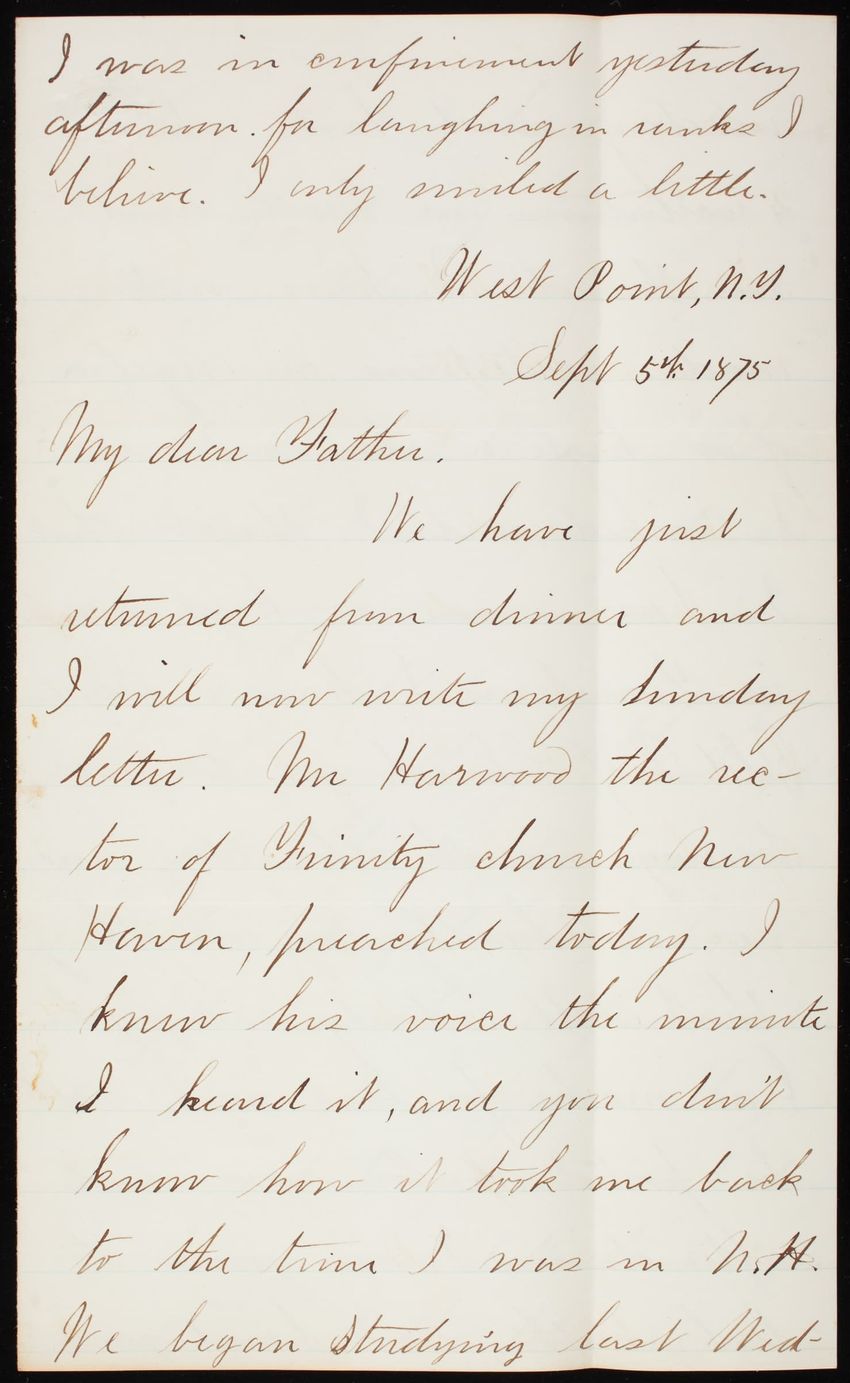 I was in confinement yesterday
afternoon. for laughing in ranks I
believe. I only smiled a little.
West Point, N.Y.
Sept 5th 1875
My dear Father.
We have just
returned from dinner and
I will now write my Sunday
letter. Mr Harwood the rec-
tor of Trinity church New
Haven, preached today. I
knew his voice the minute
I heard it, and you don't
know how it took me back
to the time I was in N.H.
We began studying last Wed-